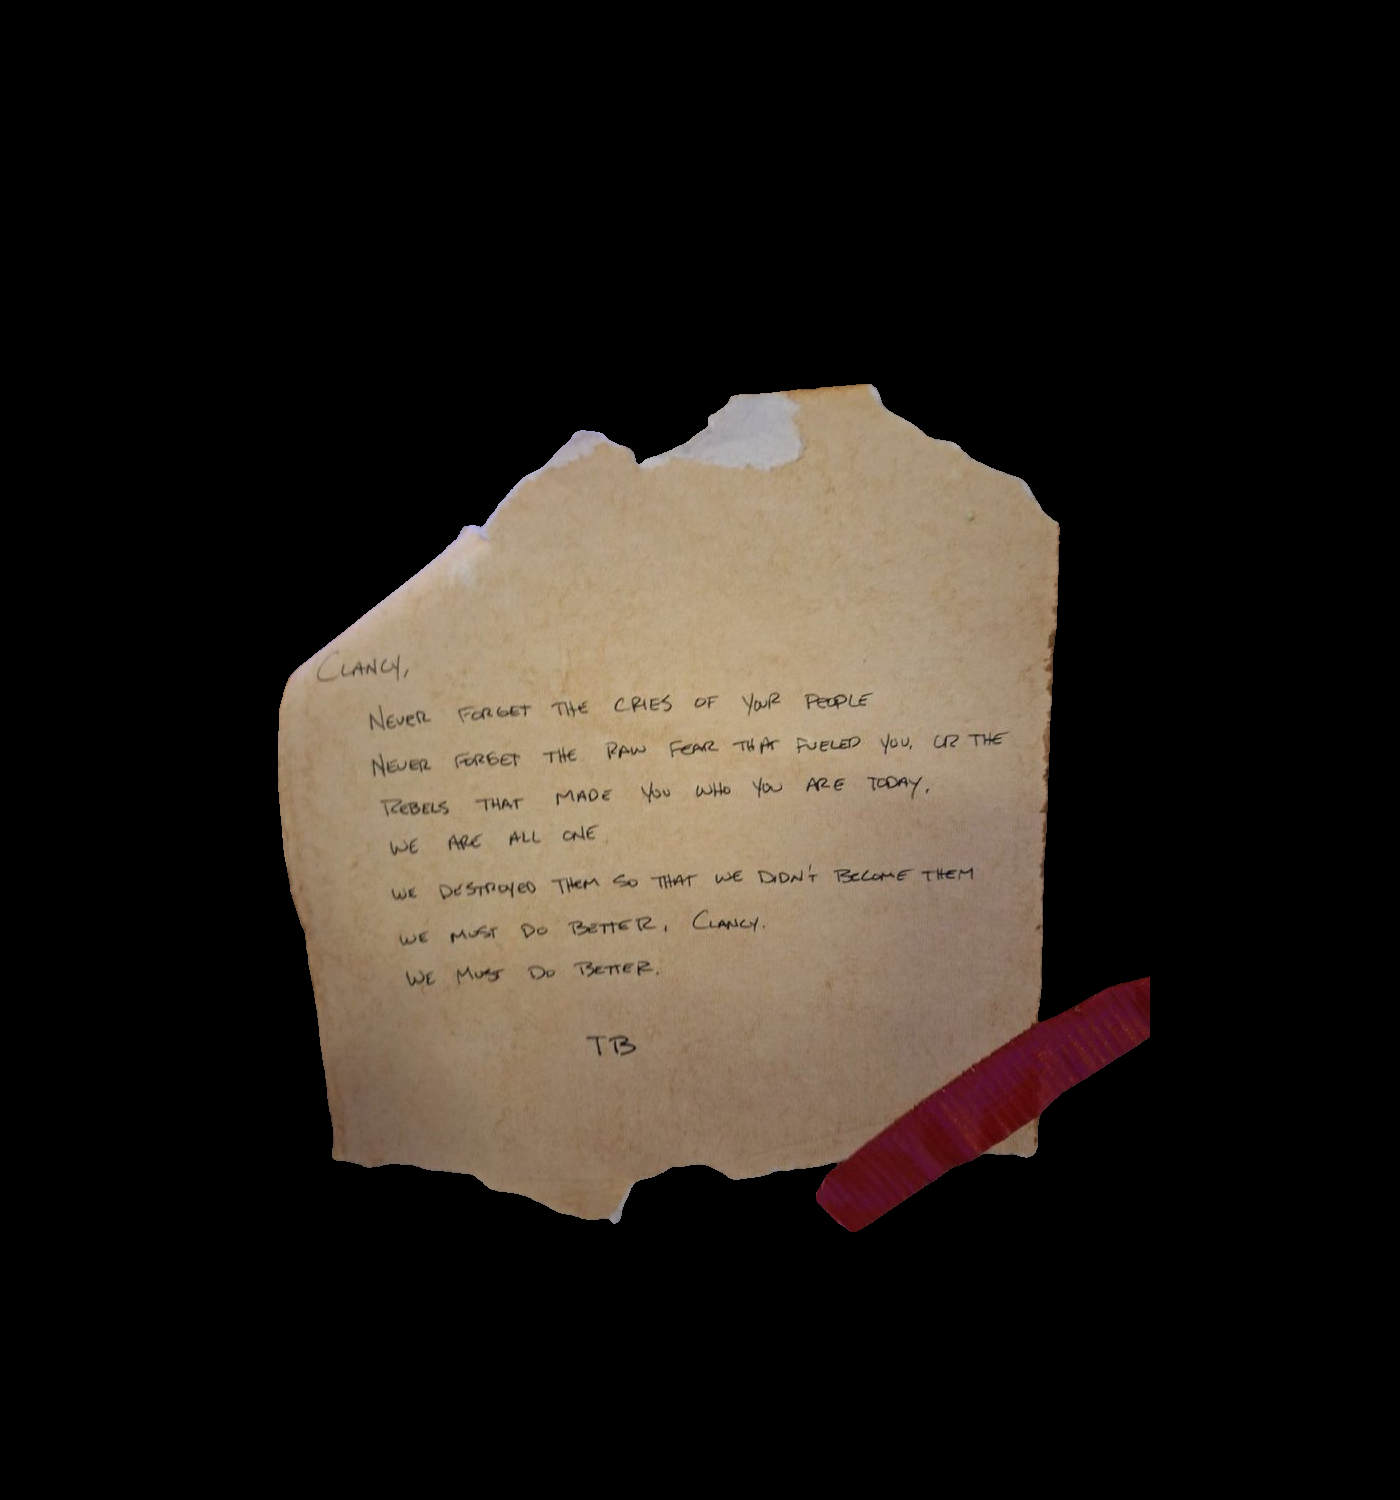 Clancy,
NEVER FORGET THE CRIES OF YOUR PEOPLE
NEVER FORGET THE RAW FEAR THAT FUELED YOU, OR THE
REBELS THAT MADE YOU WHO YOU ARE TODAY.
WE ARE ALL ONE
WE DESTROYED THEM SO THAT WE DIDN'T BECOME THEM
WE MUST DO BETTER, CLANCY.
WE MUST DO BETTER.
TB